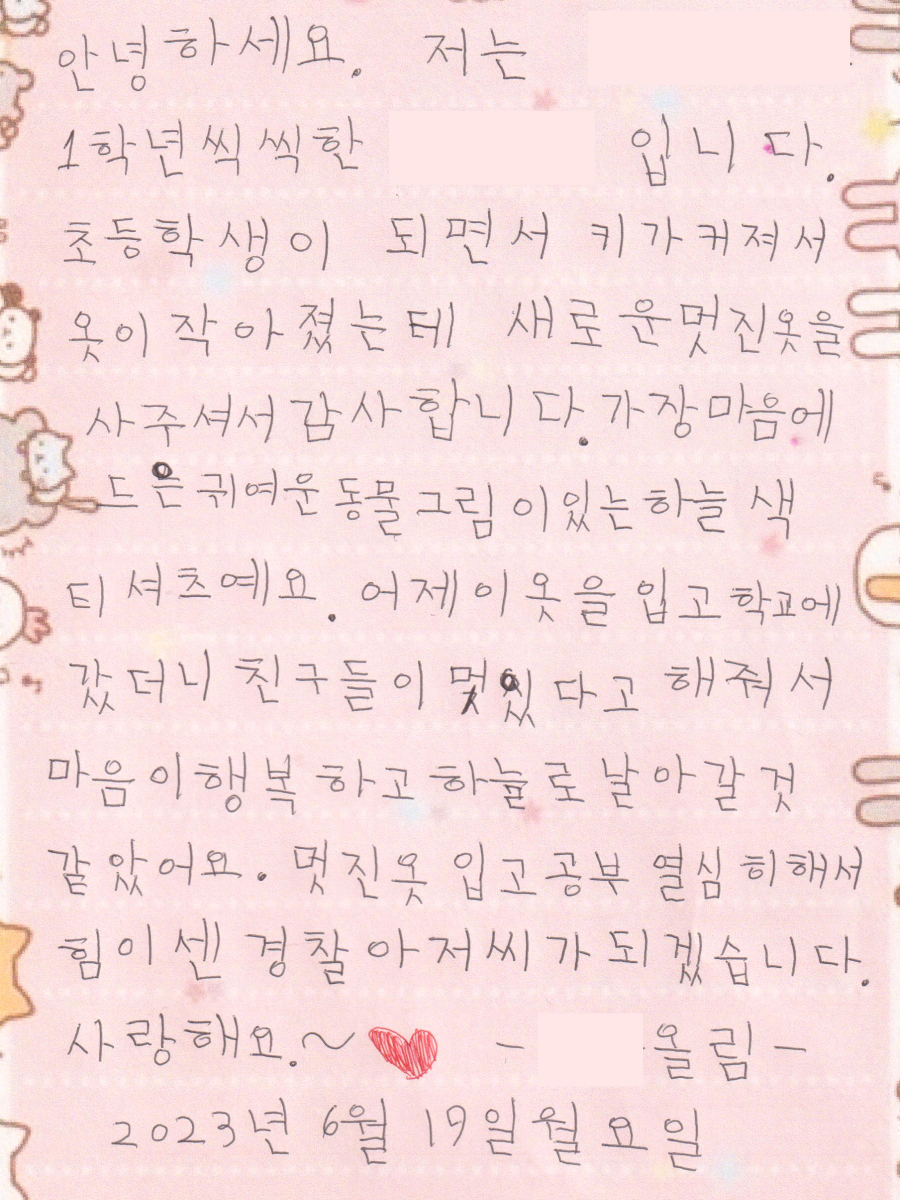 안녕하세요. 저는
1학년 씩씩한 입니다.
초등학생이 되면서 키가 커져서
옷이 작아졌는데 새로운 멋진 옷을
사주셔서 감사합니다. 가장 마음에
드은 귀여운 동물 그림이 있는 하늘색
티셔츠예요. 어제 이 옷을 입고 학교에
갔더니 친구들이 멋있다고 해줘서
마음이 행복하고 하늘로 날아갈 것
같았어요. 멋진 옷 입고 공부 열심히 해서
힘이 센 경찰 아저씨가 되겠습니다.
사랑해요.~ - 올림 -
2023년 6월 19일 월요일